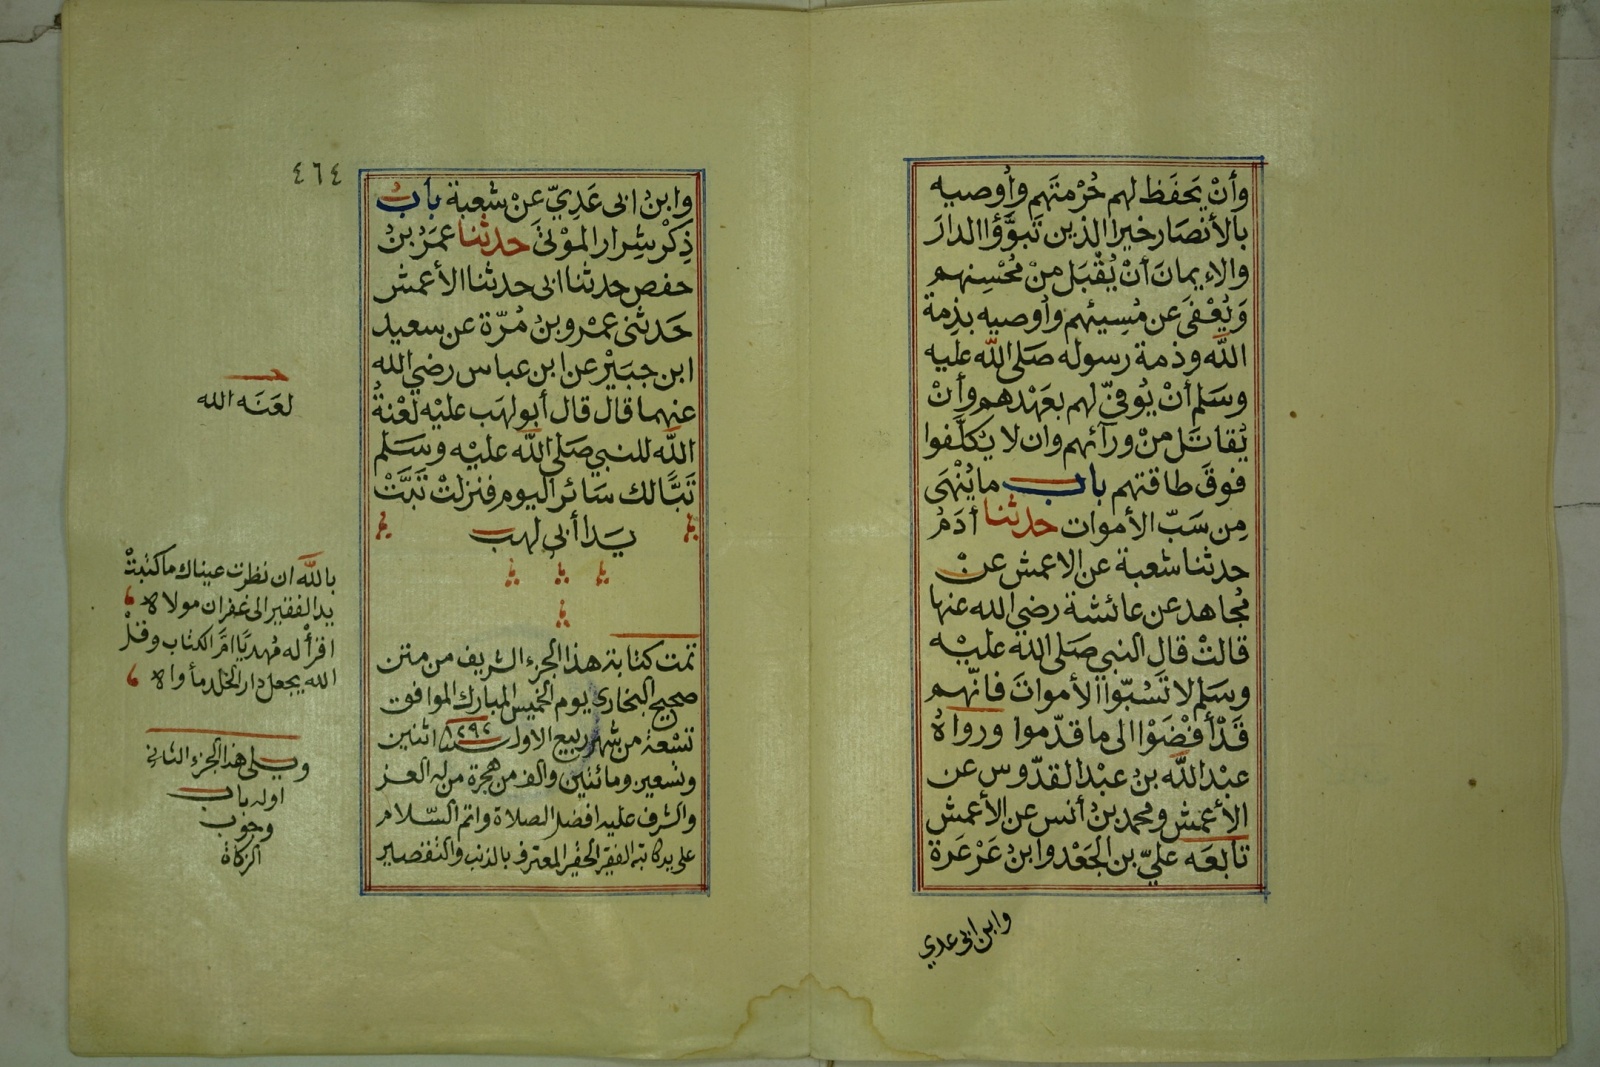 وأنْ يَحفَظ لهم حُرْمتَهم وأوصيه
بالأنصَار خيرا الذين تَبوَّؤا الدارَ
والإيمانَ أنْ يُقْبَل منْ مُحْسِنِهم
وَيُعْفَى عن مُسِيئهم وأوصيه بذِمة
الله وذمة رسوله صَلى الله عليه
وسَلم أنْ يُوفيّ لهم بعَهْدهم وأنْ
يُقاتَل منْ ورآئهم وان لا يُكَلَّفوا
فوقَ طاقتهم باب ما يُنْهَى
مِن سَبّ الأموات حدثنا أدَمُ
حدثنا شعبة عن الاعمش عنْ
مُجاهد عن عائشة رضي الله عنها
قالتْ قال النبي صَلى الله عليْه
وسَلم لا تَسُبّوا الأمواتَ فانّهم
قَدْ أفْضَوْا الى ما قدّموا ورواهُ
عبْد الله بنُ عبْد القدّوس عن
الأعمش ومحمد بنُ أنس عن الأعمش
تابَعَه عليّ بن الجَعْد وابنُ عَرْعَرة
وابن ابى عدي
٤٦٤
وابنُ ابى عَدِيّ عنْ شعبة بابُ
ذِكْر شِرار الموْتىَ حدثنا عمَرُ بنُ
حفص حدثنا ابى حدثنا الأعمش
حَدثنى عمْرو بنُ مُرّة عن سعيد
ابن جبَيْر عن ابن عباس رضي الله
عنهما قال قال أبو لهَب عليْه لَعْنةُ
الله للنبي صَلى الله عليْه وسَلم
تَبًّا لك سَائر اليوم فنزلتْ تَبَّتْ
يَدا أبى لهب
تمت كتابة هذا الجزء الشريف من متن
صحيح البخارى يوم الخميس المبارك الموافق
تسْعة من شهر ربيع الاول سنة ١٢٩٢ اثنين
وتسعين ومائتين والف من هجرة من له العز
والشرف عليه افضل الصلاة واتم السّلام
على يد كاتبه الفقير الحقير المعترف بالذنب والتقصير
لعَنَه الله
بالله ان نظرت عيناك ما كتبتْ
يد الفقير الى غفران مولاه
اقرأ له مُهديًا امّ الكتاب وقلْ
الله يجعل دار الخلد مأواه
ويلى هذا الجزء الثاني
اوله باب
وجوب
الزكاة